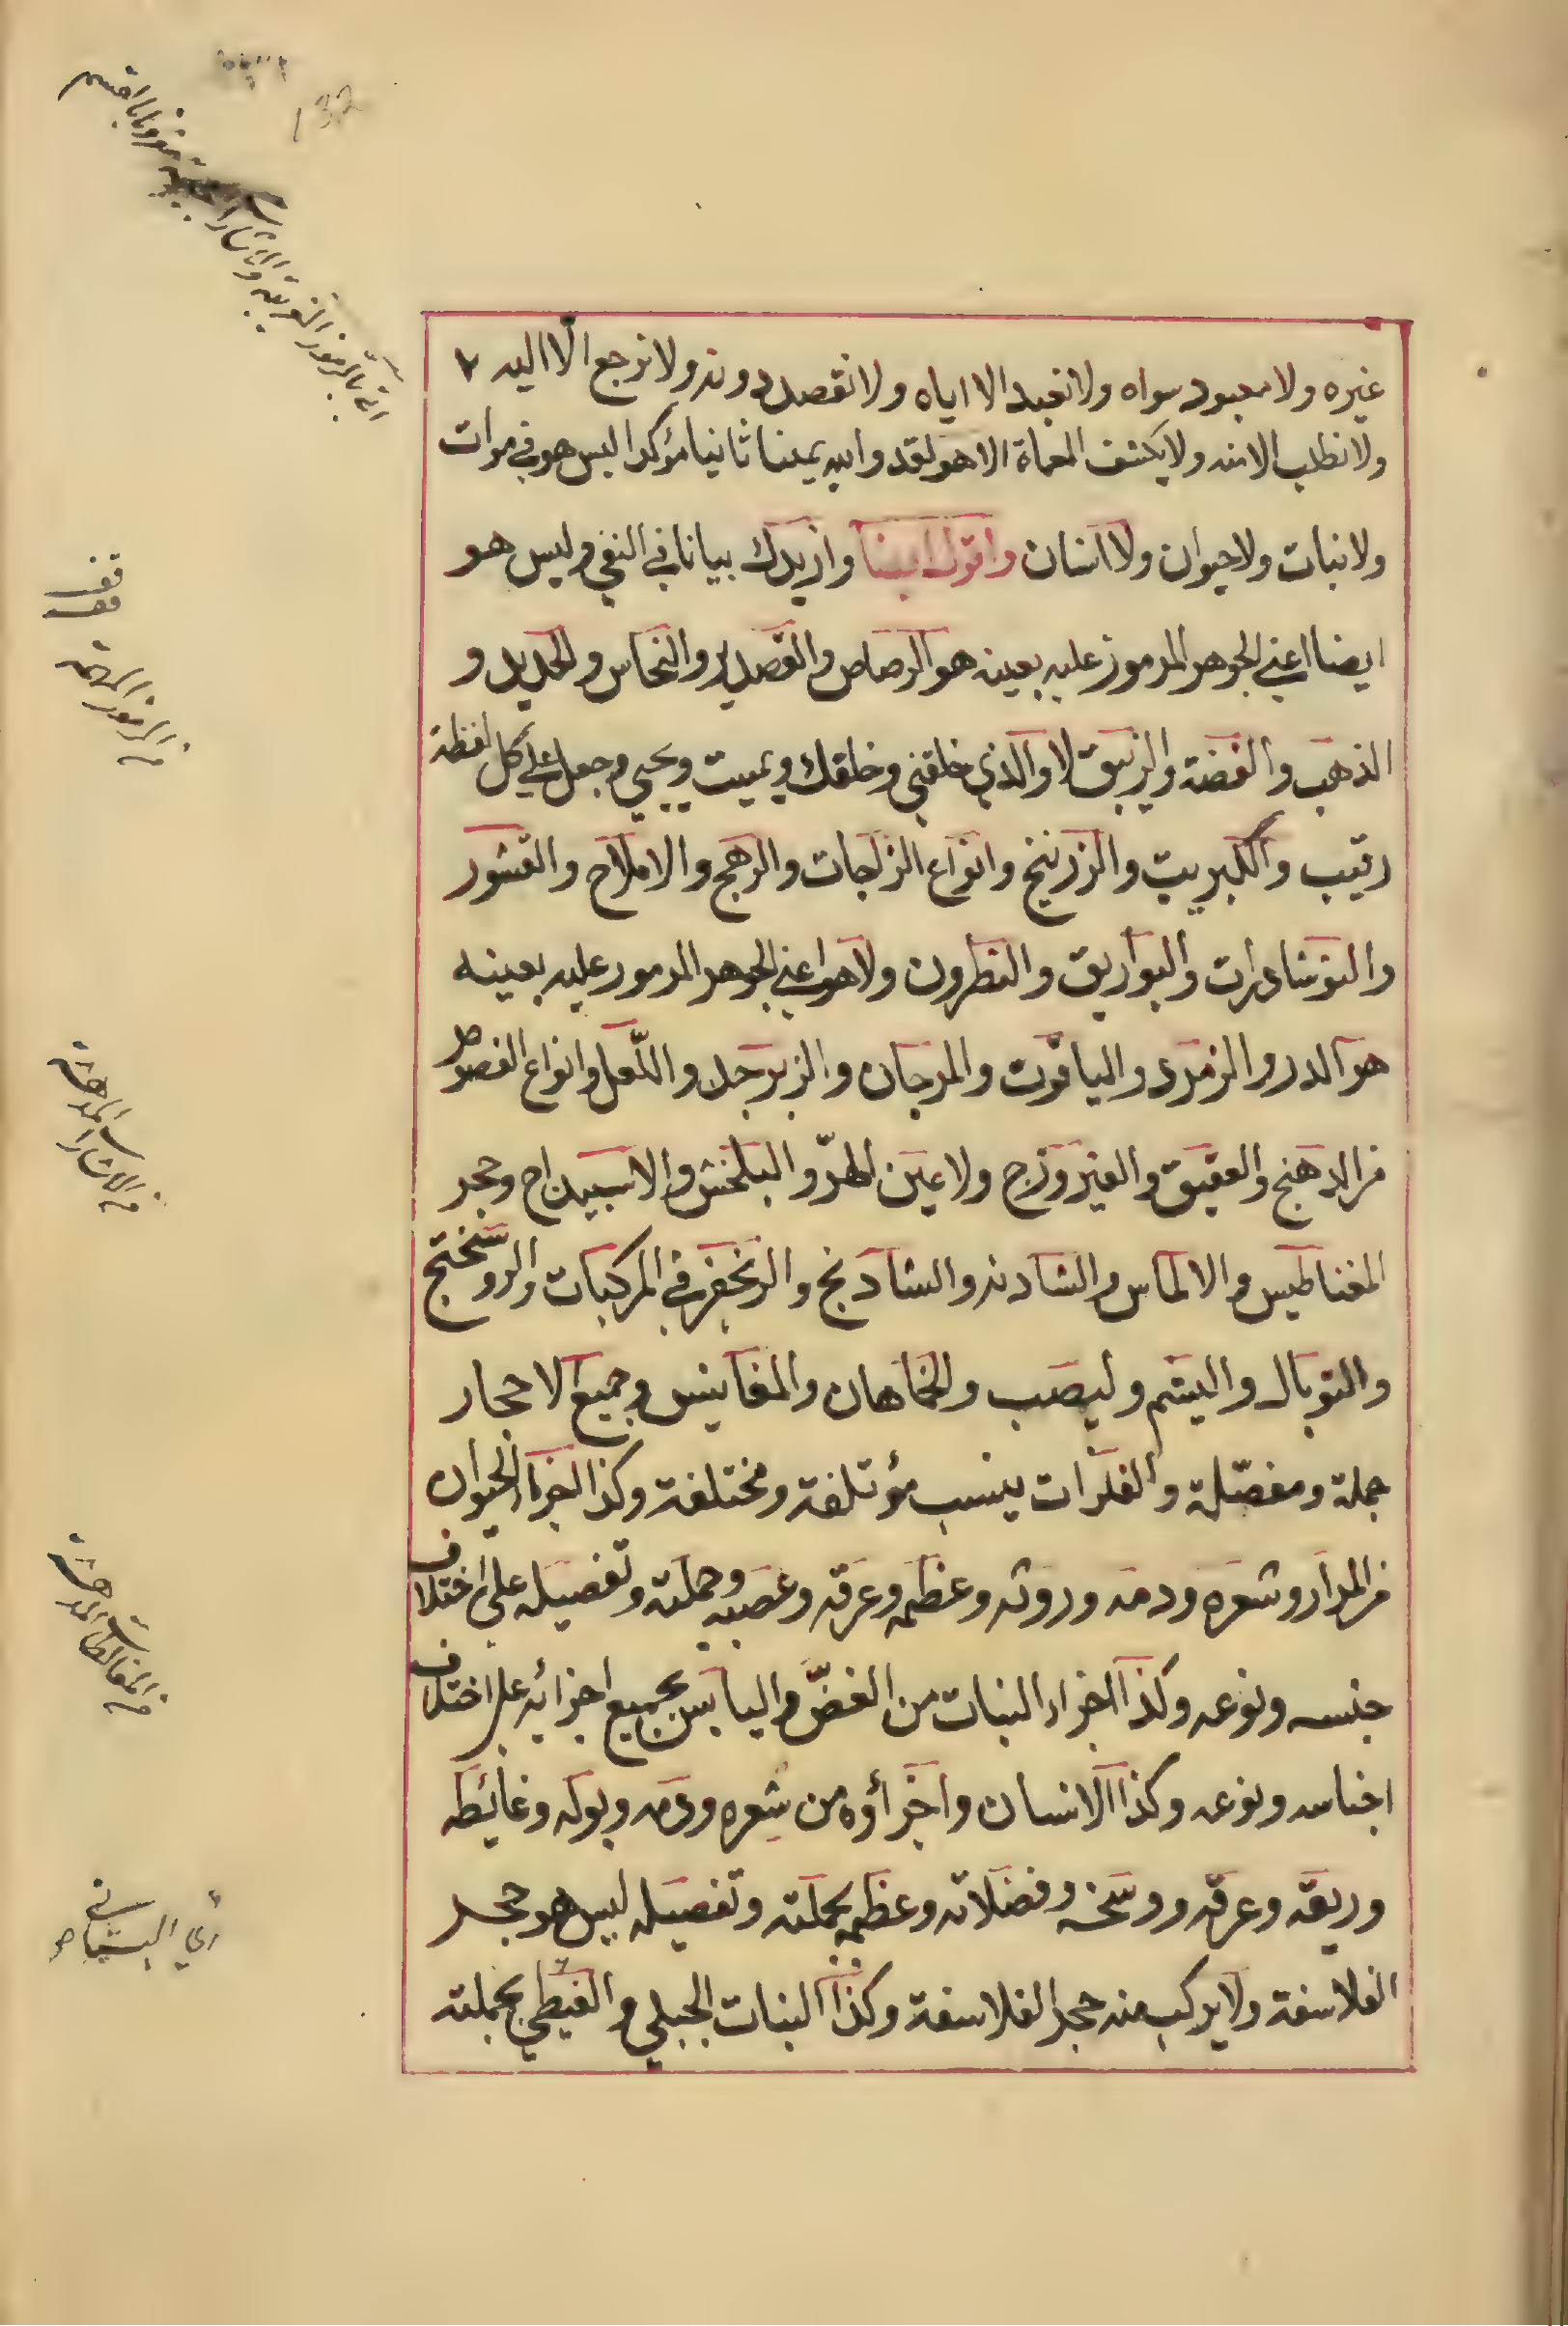 132
غيره ولا معبود سواه ولا نعبد الا اياه ولا نقصد دونه ولا نرجع الا اليه
ولا نطلب الا منه ولا يكشف المعماة الا هو لقد والله يمينا ثانيا مؤكدا ليس هو في موات
ولا نبات ولا حيوان ولا انسان واقول ايضا وازيدك بيانا في النفي وليس هو
ايضا اعني الجوهر المرموز عليه بعينه هو الرصاص والقصدير والنحاس والحديد و
الذهب والفضة والزيبق لا والذي خلقني وخلقك ويميت ويحيي وجعل علي كل لفظة
رقيب والكبريت والزرنيخ وانواع الزاجات والرهج والاملاح والقشور
والنوشادرات والبواريق والنطرون ولا هو اعني الجوهر المرموز عليه بعينه
هو الدر والزمرد والياقوت والمرجان والزبرجد واللعل وانواع الفصوص
من الدهنج والعقيق والفيروزج ولا عين الهرّ والبلخش والاسبيداج وحجر
المغناطيس والالماس والشادنه والشادنج والزنجفر في المركبات والروسختج
والتوبال واليشم وليصب والخماهان والمغانيس وجميع الاحجار
جملة ومفصّلة والفلزات بنسب مؤتلفة ومختلفة وكذا اجزاء الحيوان
من المرار وشعره ودمه وروثه وعظمه وعرقه وعصبه وجملته وتفصيله على اختلاف
جنسه ونوعه وكذا اجزاء النبات من الغضّ واليابس بجميع اجزائه على اختلاف
اجناسه ونوعه وكذا الانسان واجزاؤه من شعره ودمه وبوله وغائطه
وريقه وعرقه ووسخه وفضلاته وعظمه بجملته وتفصيله ليس هو حجر
الفلاسفة ولا يركب منه حجر الفلاسفة وكذا النبات الجبلي والغيطي بجملته
قف
من الرموز
من الاشارات المدهشة
من المغالطات المدهشة